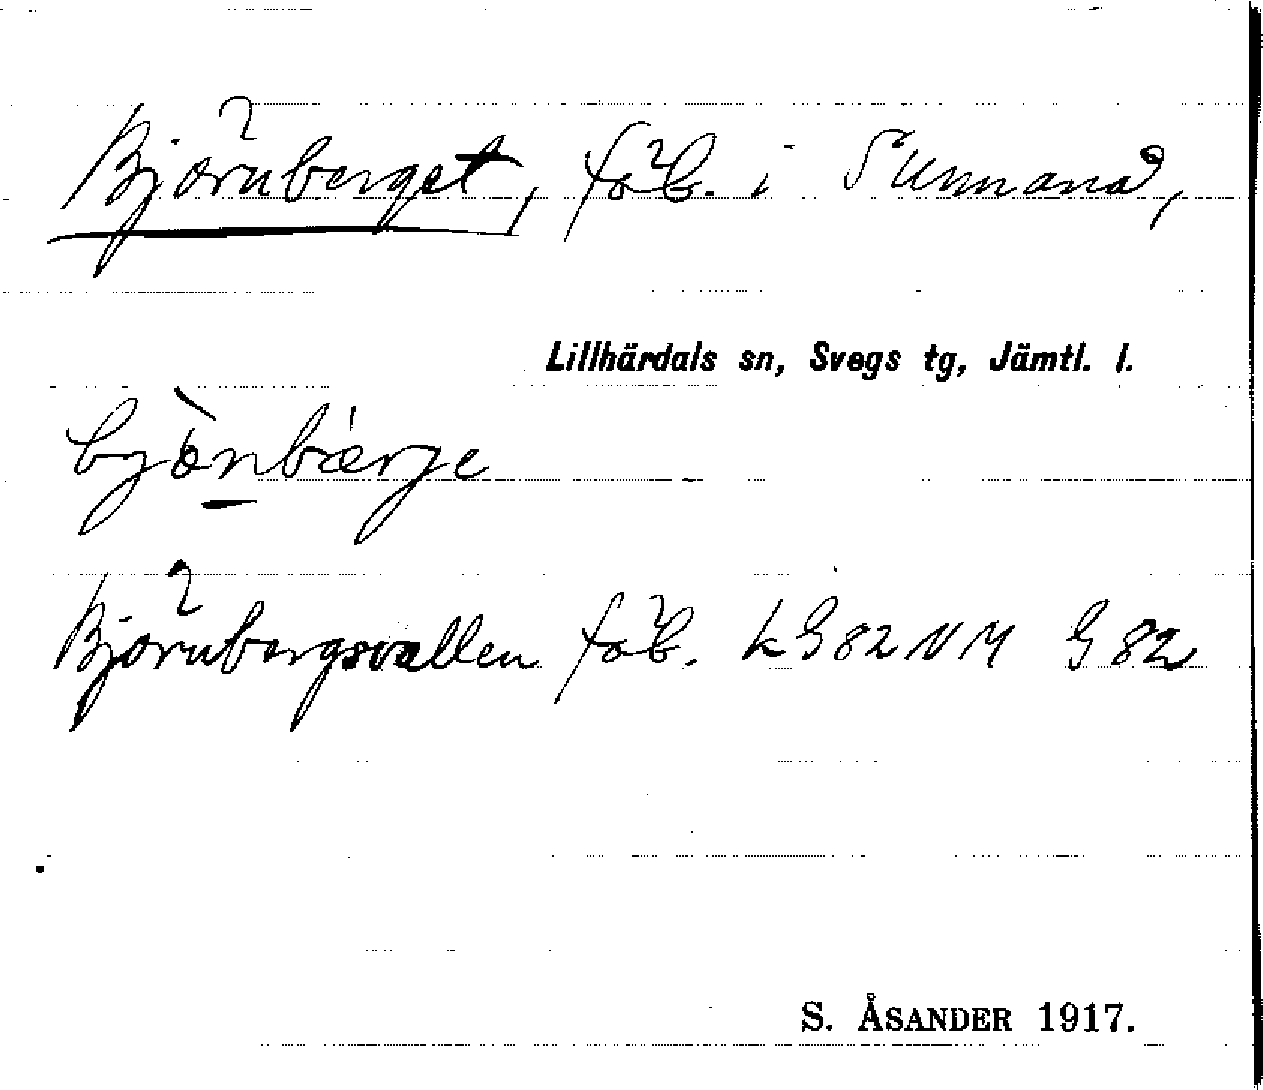 Björnberget, fäb. i Sunnanå,
Lillhärdals sn, Svegs tg, Jämtl. l.
bjönbærje
Björnbergsvallen fäb. kG82NM G82
S. ÅSANDER 1917.